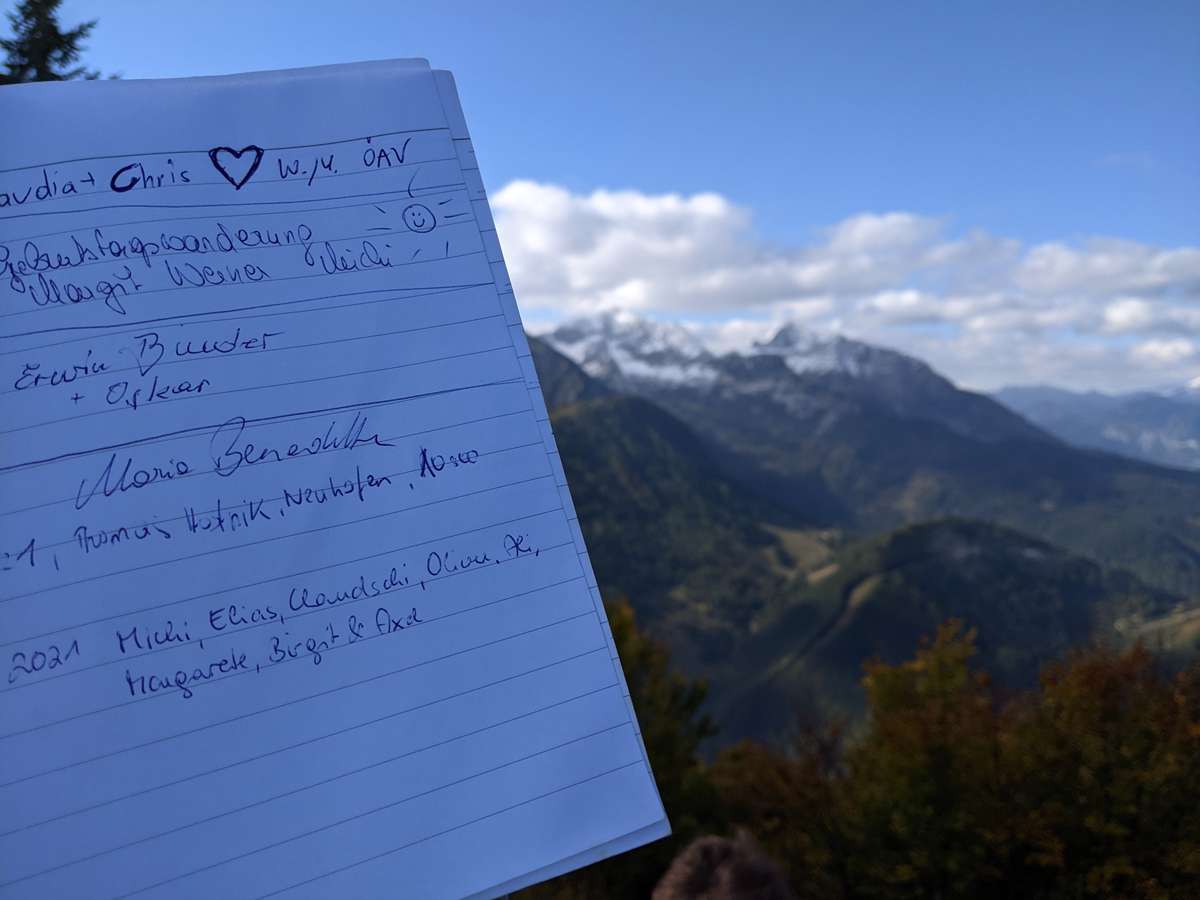 audia + Chris ♡ W./U. ÖAV
Geburtstagswanderung
Margit Werner Michi
Erwin Binder
+ Oskar
Maria Benedikta
21, Thomas Hofnik, Neuhofen,
2021 Michi, Elias, Claudschi, Oliver, Ali,
Margarete, Birgit & Axel